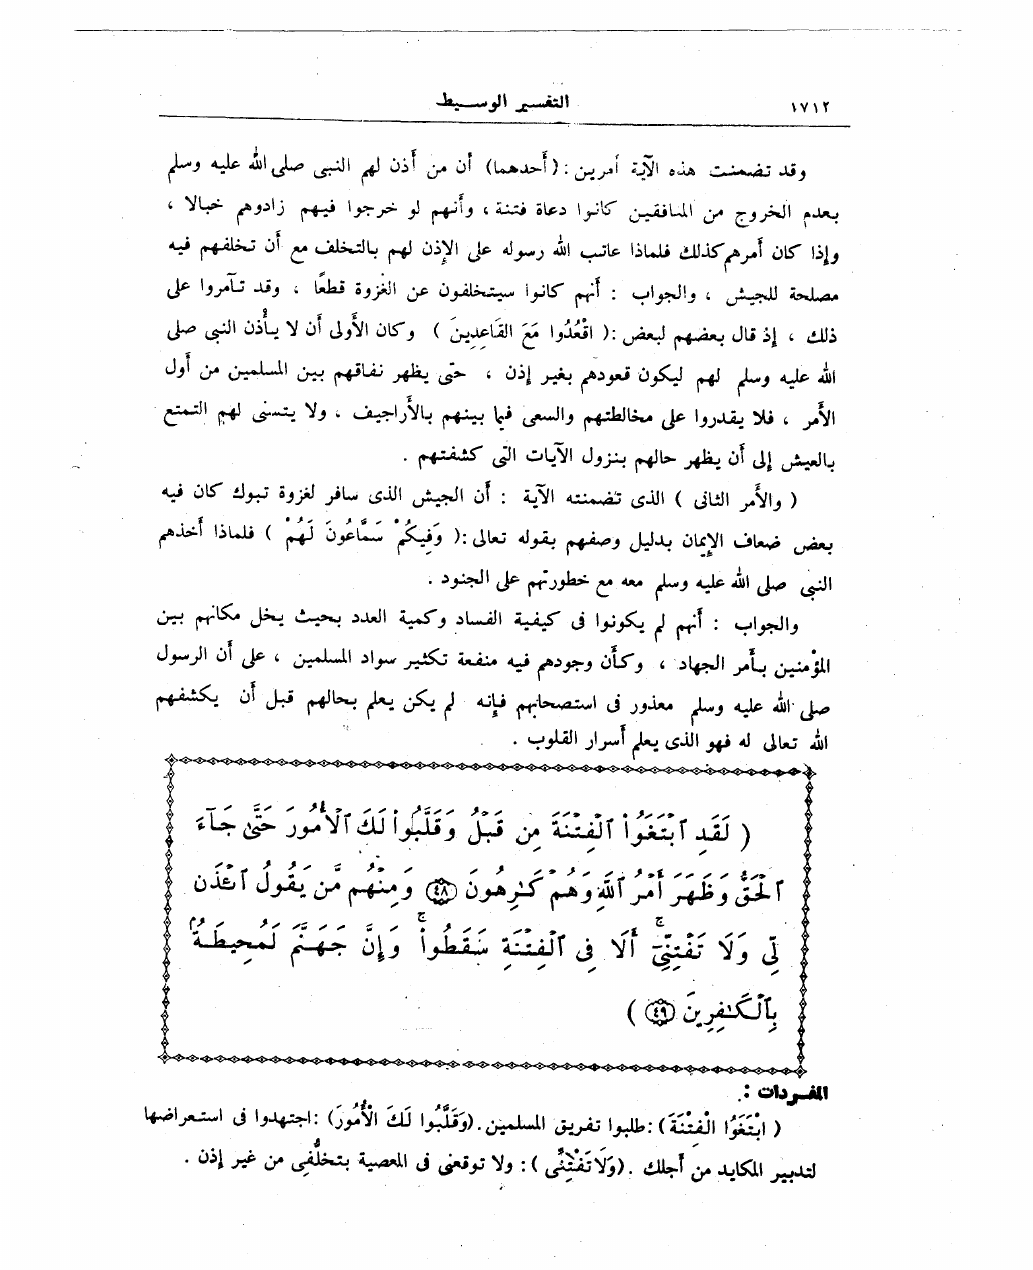 ١٧١٢ التفسير الوسيط
وقد تضمنت هذه الآية أمرين : (أحدهما) أن من أذن لهم النبى صلى الله عليه وسلم
بعدم الخروج من المنافقين كانوا دعاة فتنة ، وأنهم لو خرجوا فيهم زادوهم خبالا ،
وإذا كان أمرهم كذلك فلماذا عاتب الله رسوله على الإذن لهم بالتخلف مع أن تخلفهم فيه
مصلحة للجيش ، والجواب : أنهم كانوا سيتخلفون عن الغزوة قطعًا ، وقد تآمروا على
ذلك ، إذ قال بعضهم لبعض : ( اقْعُدُوا مَعَ القَاعِدِينَ ) وكان الأولى أن لا يأْذن النبى صلى
الله عليه وسلم لهم ليكون قعودهم بغير إذن ، حتى يظهر نفاقهم بين المسلمين من أول
الأمر ، فلا يقدروا على مخالطتهم والسعى فيما بينهم بالأراجيف ، ولا يتسنى لهم التمتع
بالعيش إلى أن يظهر حالهم بنزول الآيات التى كشفتهم .
( والأمر الثانى ) الذى تضمنته الآية : أن الجيش الذى سافر لغزوة تبوك كان فيه
بعض ضعاف الإيمان بدليل وصفهم بقوله تعالى : ( وَفِيكُمْ سَمَّاعُونَ لَهُمْ ) فلماذا أخذهم
النبى صلى الله عليه وسلم معه مع خطورتهم على الجنود .
والجواب : أنهم لم يكونوا فى كيفية الفساد وكمية العدد بحيث يخل مكانهم بين
المؤمنين بأمر الجهاد ، وكأن وجودهم فيه منفعة تكثير سواد المسلمين ، على أن الرسول
صلى الله عليه وسلم معذور فى استصحابهم فإنه لم يكن يعلم بحالهم قبل أن يكشفهم
الله تعالى له فهو الذى يعلم أسرار القلوب .
( لَقَدِ ٱبْتَغَوُا۟ ٱلْفِتْنَةَ مِن قَبْلُ وَقَلَّبُوا۟ لَكَ ٱلْأُمُورَ حَتَّىٰ جَآءَ
ٱلْحَقُّ وَظَهَرَ أَمْرُ ٱللَّهِ وَهُمْ كَـٰرِهُونَ ٤٨ وَمِنْهُم مَّن يَقُولُ ٱئْذَن
لِّى وَلَا تَفْتِنِّىٓ ۚ أَلَا فِى ٱلْفِتْنَةِ سَقَطُوا۟ ۗ وَإِنَّ جَهَنَّمَ لَمُحِيطَةٌۢ
بِٱلْكَـٰفِرِينَ ٤٩ )
المفردات :
( ابْتَغَوُا الْفِتْنَةَ ) : طلبوا تفريق المسلمين . (وَقَلَّبُوا لَكَ الْأُمُورَ) : اجتهدوا فى استعراضها
لتدبير المكايد من أجلك . (وَلَا تَفْتِنِّى ) : ولا توقعنى فى المعصية بتخلُّفى من غير إذن .